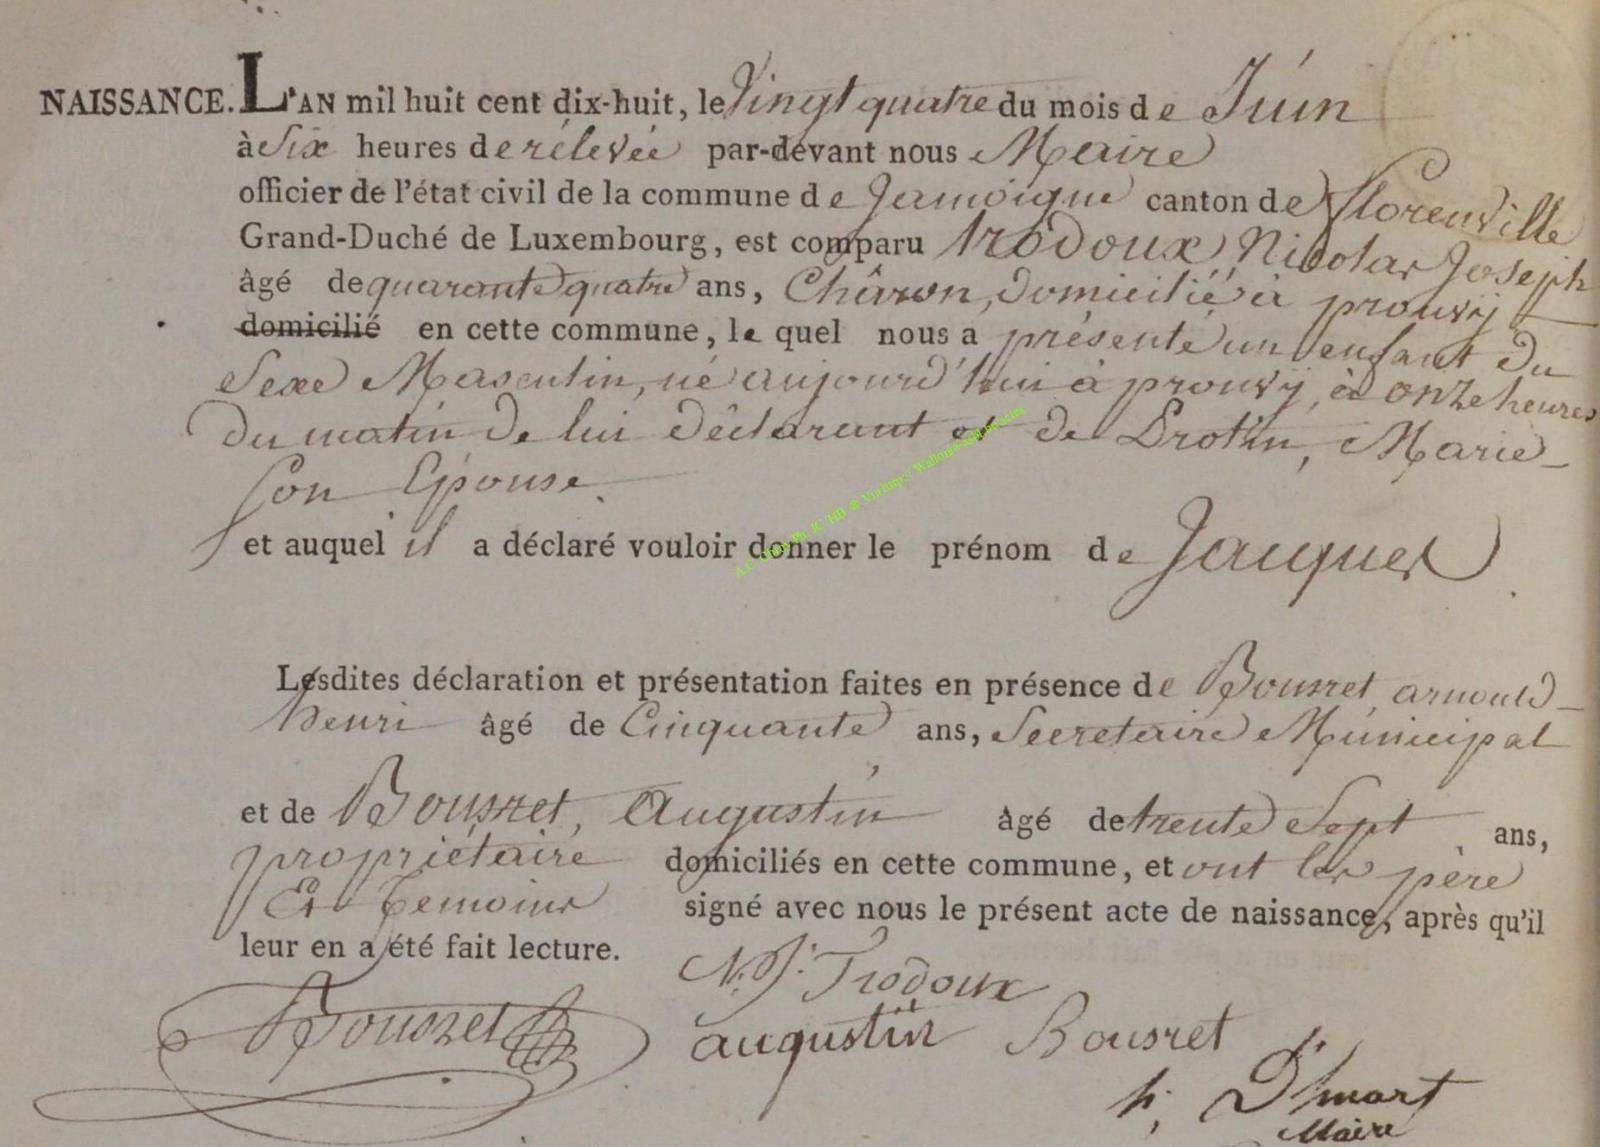 NAISSANCE. L'AN mil huit cent dix-huit, le Vingt quatre du mois de Juin
à Six heures de rélevée par-devant nous Maire
officier de l'état civil de la commune de Jamoigne canton de florenville
Grand-Duché de Luxembourg, est comparu trodoux, Nicolas Joseph
âgé de quarante quatre ans, Châron, domicilié à prouvÿ
domicilié en cette commune, le quel nous a présenté un enfant du
Sexe Masculin, né aujourd'hui à prouvÿ, à onze heures
du matin de lui déclarant et de Drotin, Marie
son Epouse.
et auquel il a déclaré vouloir donner le prénom de Jacques
Lesdites déclaration et présentation faites en présence de Bousret, arnould
henri âgé de Cinquante ans, Secretaire Municipal
et de Bousret, Augustin âgé de trente Sept ans,
propriétaire domiciliés en cette commune, et ont les père
Et Temoins signé avec nous le présent acte de naissance, après qu'il
leur en a été fait lecture.
N. J. Trodoux
Bousret
augustin Bousret
h. D'huart
Maire